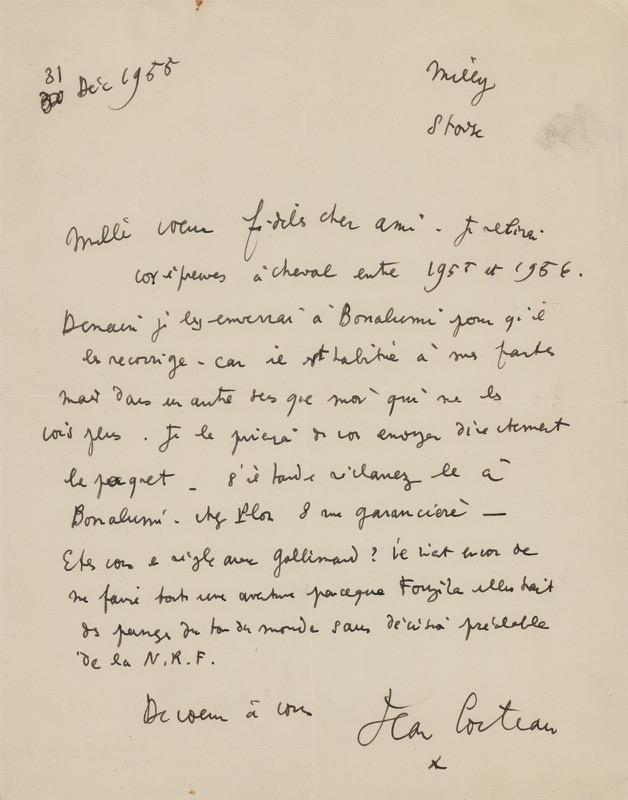 31
Déc 1955
Milly
S et Oise
Mille cœurs fidèles cher ami. Je
vos épreuves à cheval entre 1955 et 1956.
Demain je les enverrai à Bonalumi pour qu'il
les recorrige - car il est habitué à mes fautes
mais dans un autre sens que moi qui ne les
vois plus. Je le prierai de vous envoyer directement
le paquet _ S'il tarde réclamez le à
Bonalumi. chez Plon 8 rue garancière —
Etes vous en règle avec Gallimard? Il vient encor de
me faire toute une aventure parceque illustrait
des pages du tour du monde sans décision préalable
de la N.R.F.
De cœur à vous
Jean Cocteau